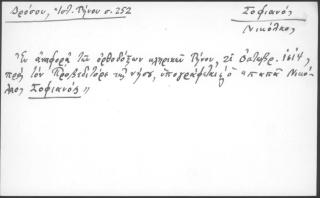 Δρόσου, Ἱστ. Τήνου σ. 252
Σοφιανός
Νικόλαος
Ἐν ἀναφορᾷ τῶν ὀρθοδόξων κληρικῶν Τήνου, 21 Ὀκτωβρ. 1614,
πρὸς τὸν Προβεδιτόρε τῆς νήσου, ὑπογράφεται ὁ "παπᾶ Νικό-
λαος Σοφιανός"